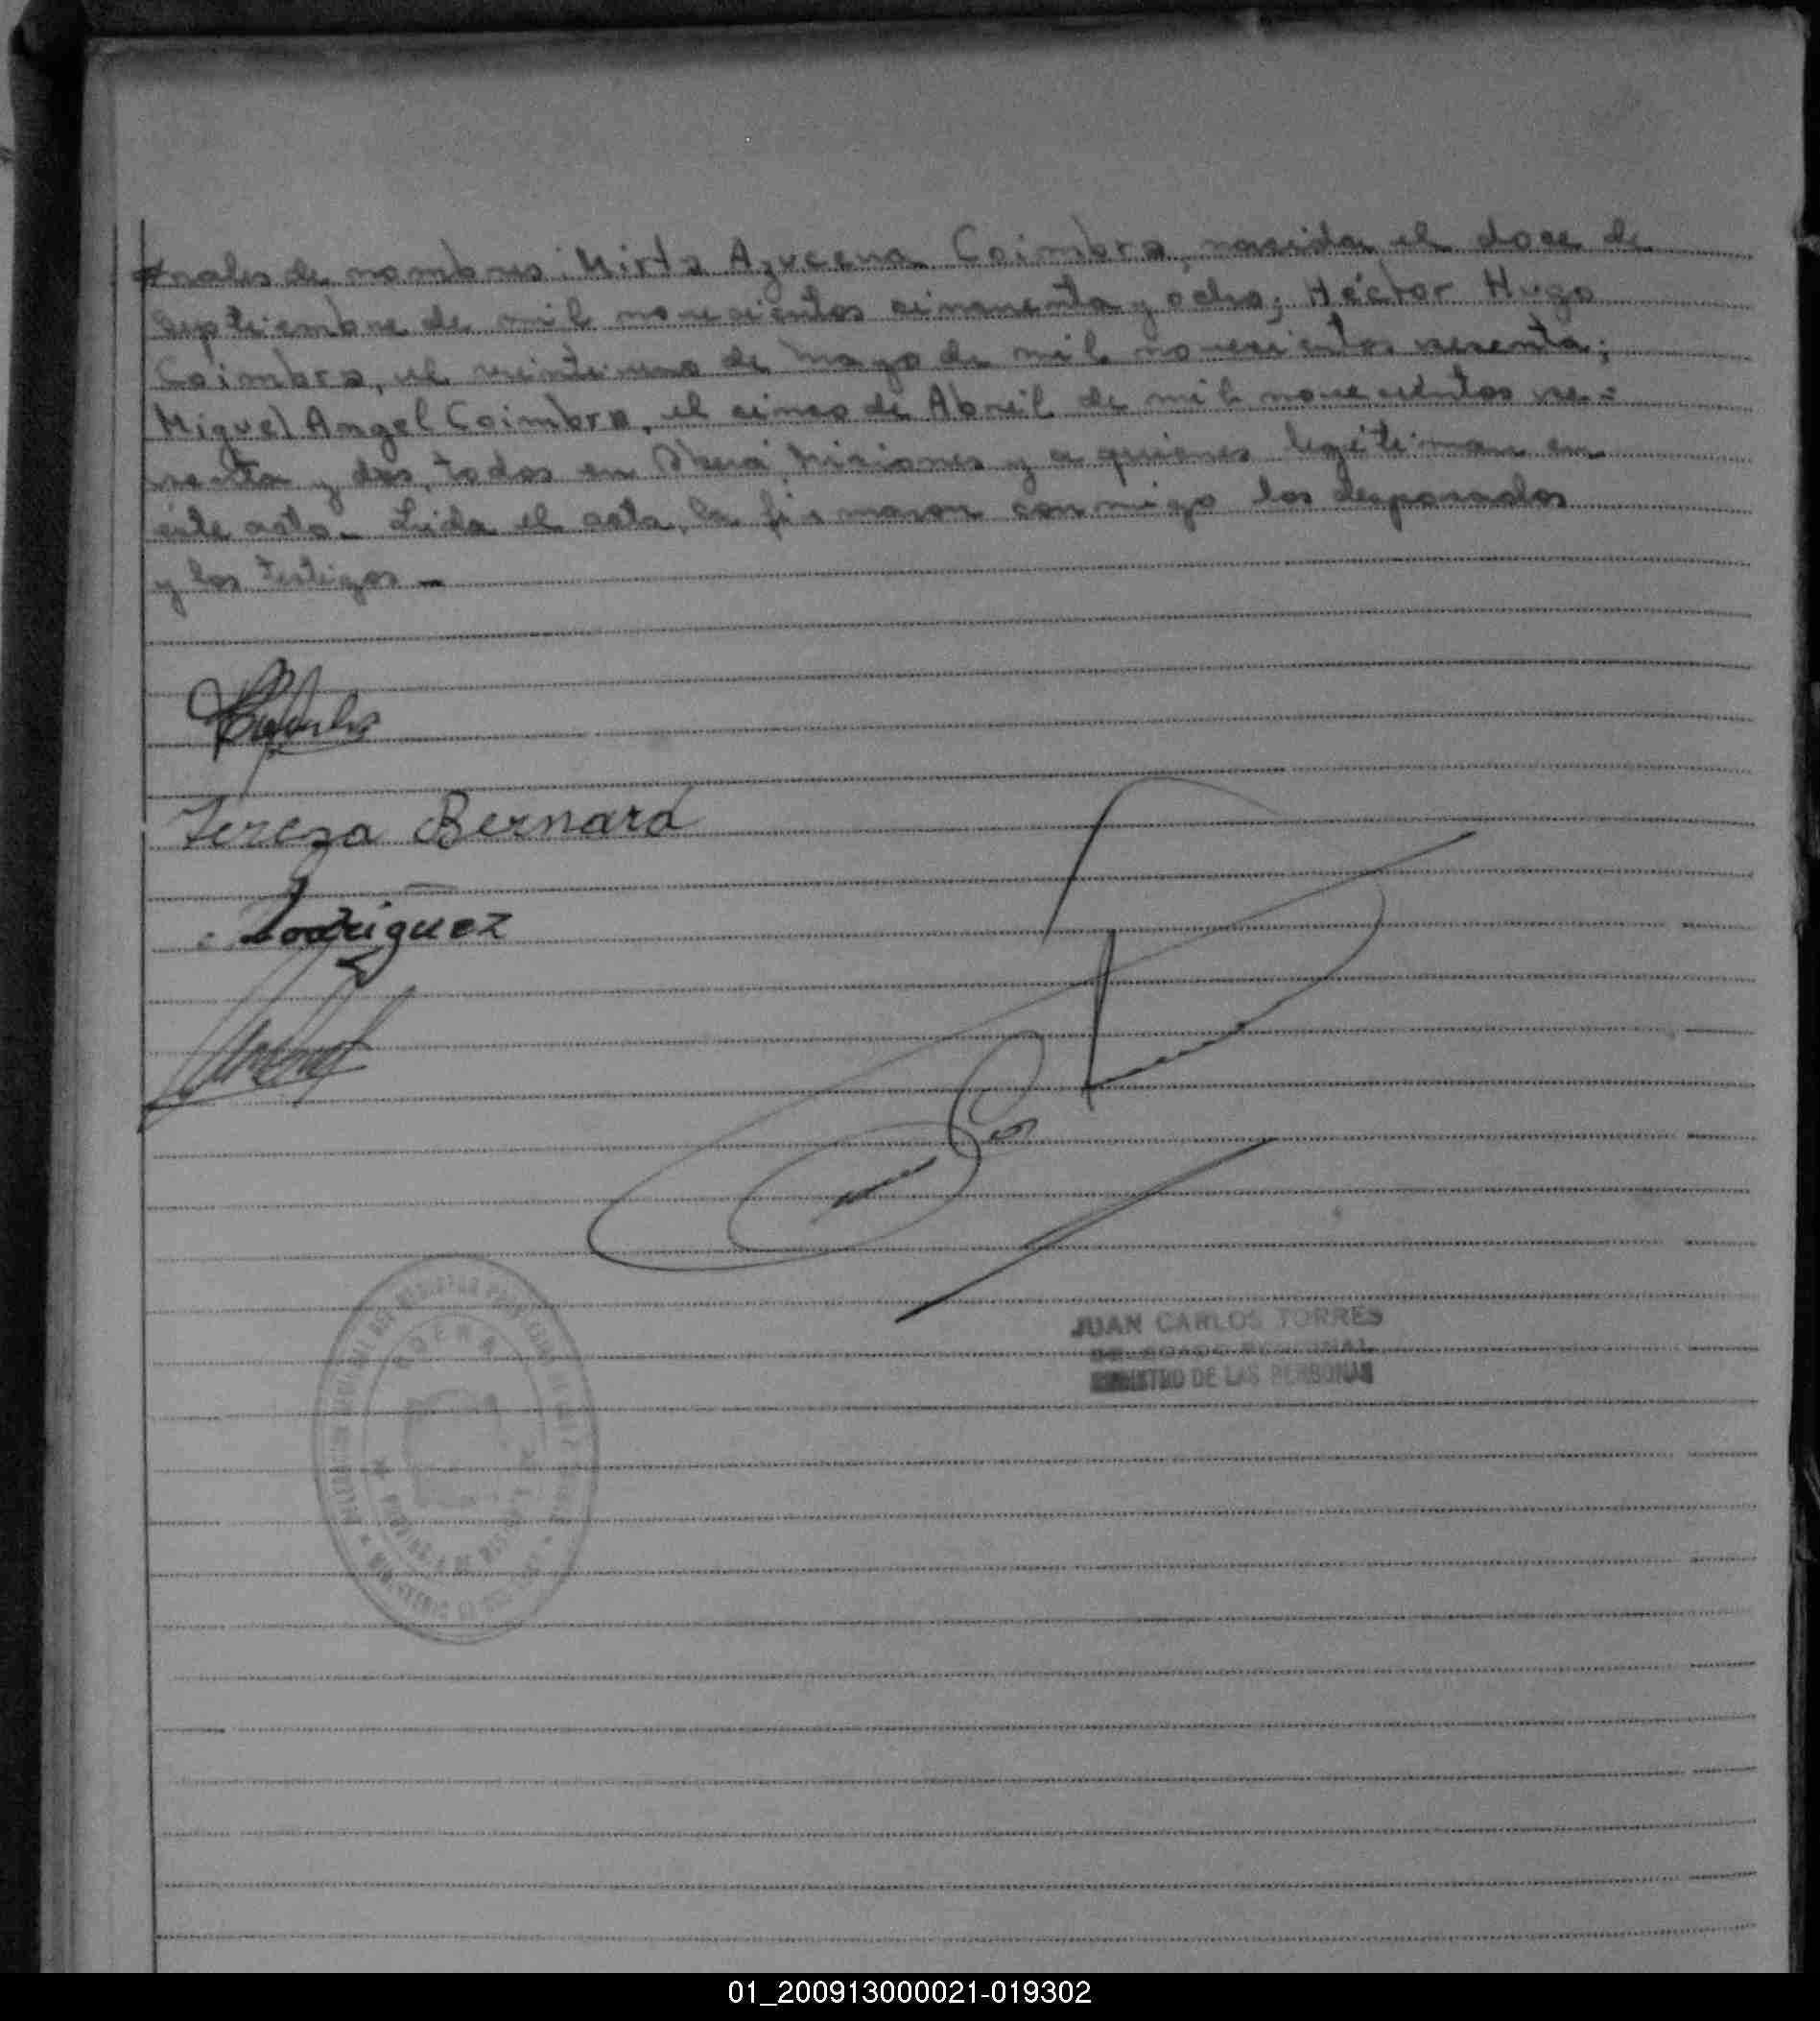 nales de nombres: Mirta Azucena Coimbra, nacida el doce de
Septiembre de mil novecientos cincuenta y ocho; Héctor Hugo
Coimbra, el veintiuno de Mayo de mil novecientos sesenta;
Miguel Angel Coimbra, el cinco de Abril de mil novecientos se-
senta y dos, todos en Oberá, Misiones y a quienes legitiman en
éste acto. Leida el acta, la firmaron conmigo los desposados
y los testigos -
Teresa Bernard
Rodriguez
JUAN CARLOS TORRES
REGISTRO DE LAS PERSONAS
01_200913000021-019302